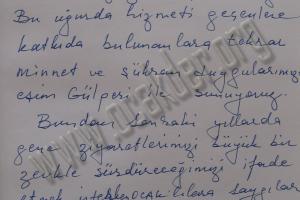 Bu uğurda hizmeti geçenlere
katkıda bulunanlara tekrar
minnet ve şükran duygularımızı
eşim Gülperi ile sunuyoruz.
Bundan sonraki yıllarda
gene ziyaretlerimizi büyük bir
zevkle sürdüreceğimizi ifade
etmek saygılar